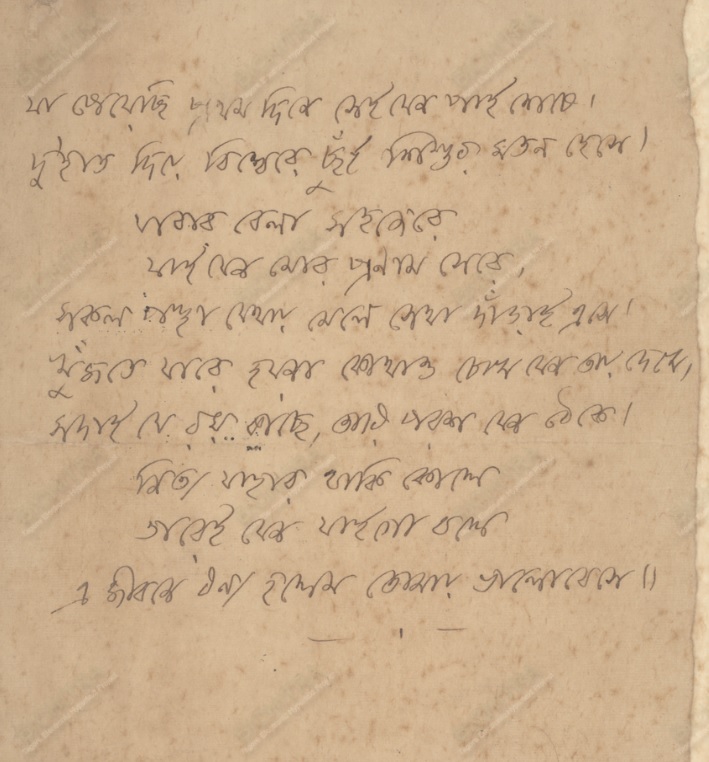 যা পেয়েছি প্রথম দিনে সেই যেন পাই শেষে।
দু'হাত দিয়ে বিশ্বেরে ছুঁই শিশুর মতন হেসে।
যাবার বেলা সহজেরে
যাই যেন মোর প্রণাম সেরে,
সকল পন্থা যেথায় মেলে সেথা দাঁড়াই এসে।
খুঁজতে যারে হয়না কোথাও চোখ যেন তায় দেখে,
সদাই যে রয় কাছে, তারি পরশ যেন ঠেকে।
নিত্য যাহার থাকি কোলে
তারেই যেন যাইগো বলে
এ জীবনে ধন্য হলেম তোমায় ভালোবেসে॥